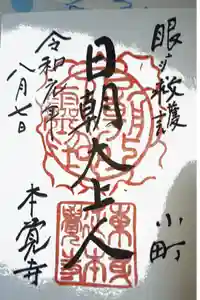 眼ヲ救護
小町
日朝大上人
令和元年
八月七日
本覚寺